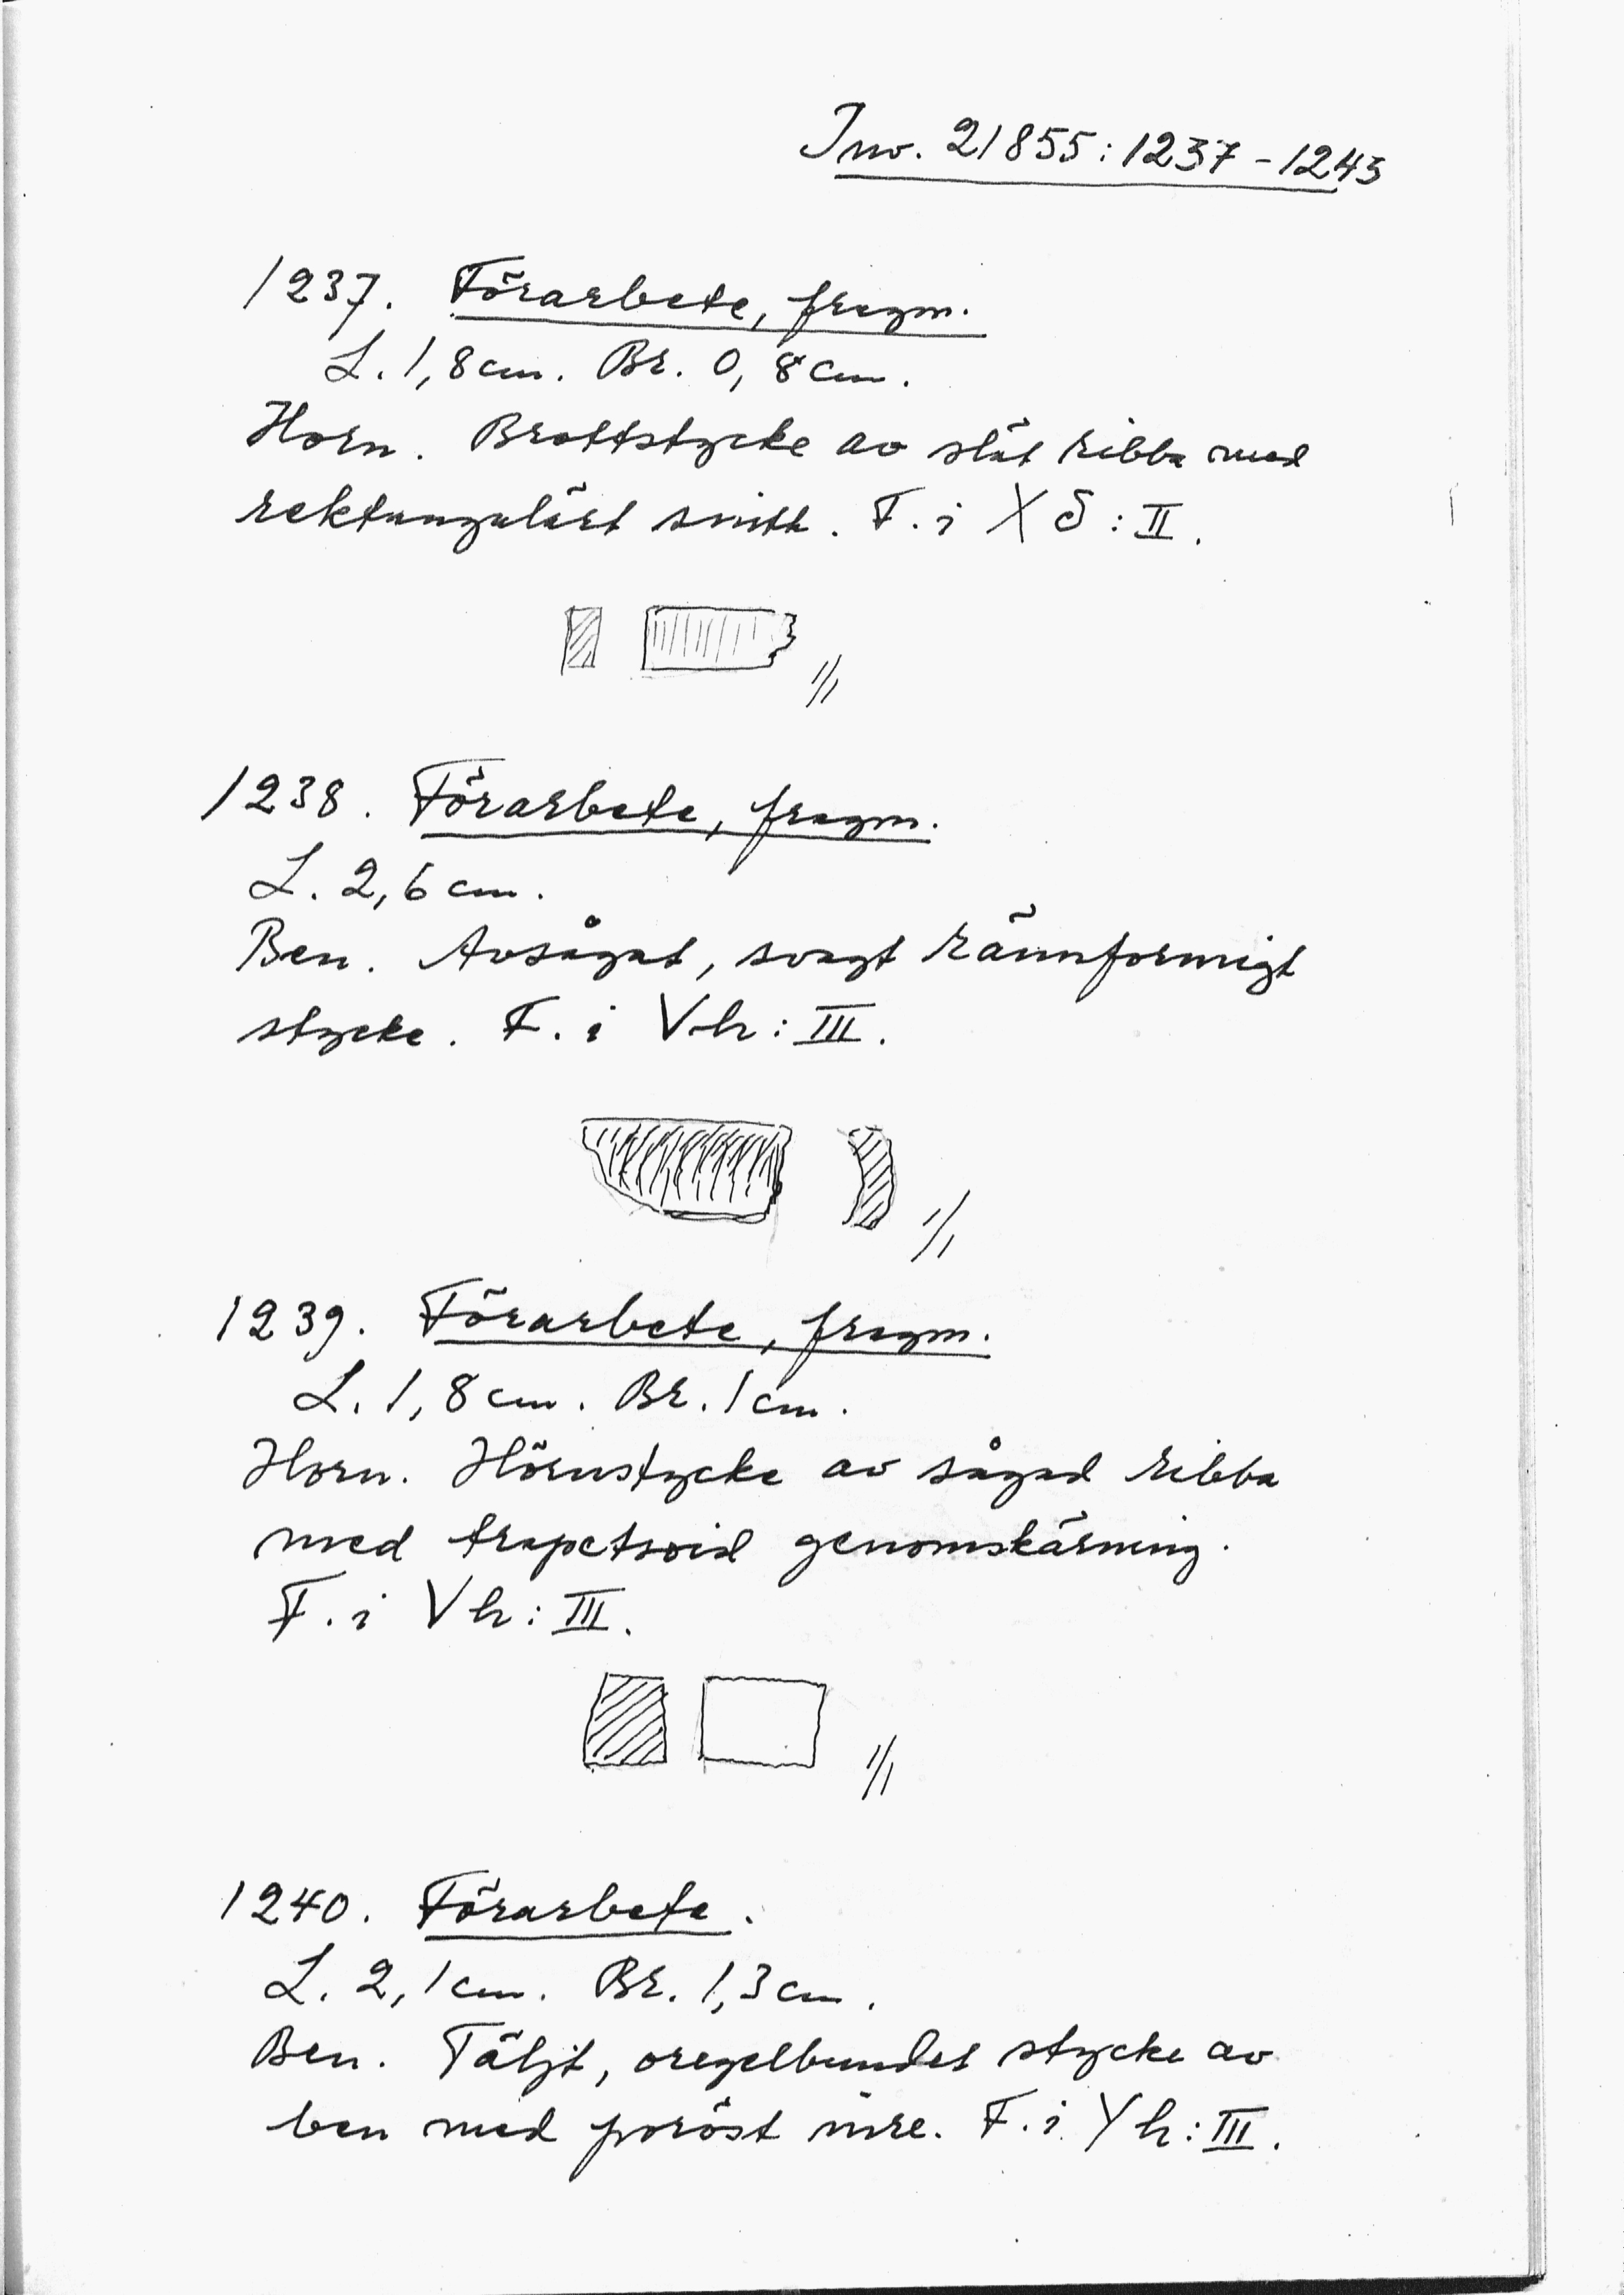 Inv. 21855:1237-1243
1237. Förarbete, fragm.
L. 1,8 cm. Br. 0,8 cm.
Horn. Brottstycke av slät ribba med
rektangulärt snitt. F. i X S : II.
1/1
1238. Förarbete, fragm.
L. 2,6 cm.
Ben. Avsågat, svagt rännformigt
stycke. F. i Vh : III.
1/1
1239. Förarbete, fragm.
L. 1,8 cm. Br. 1 cm.
Horn. Hörnstycke av sågad ribba
med trapetsoid genomskärning.
F. i Vh : III.
1/1
1240. Förarbete.
L. 2,1 cm. Br. 1,3 cm.
Ben. Täljt, oregelbundet stycke av
ben med poröst inre. F. i Yh : III.